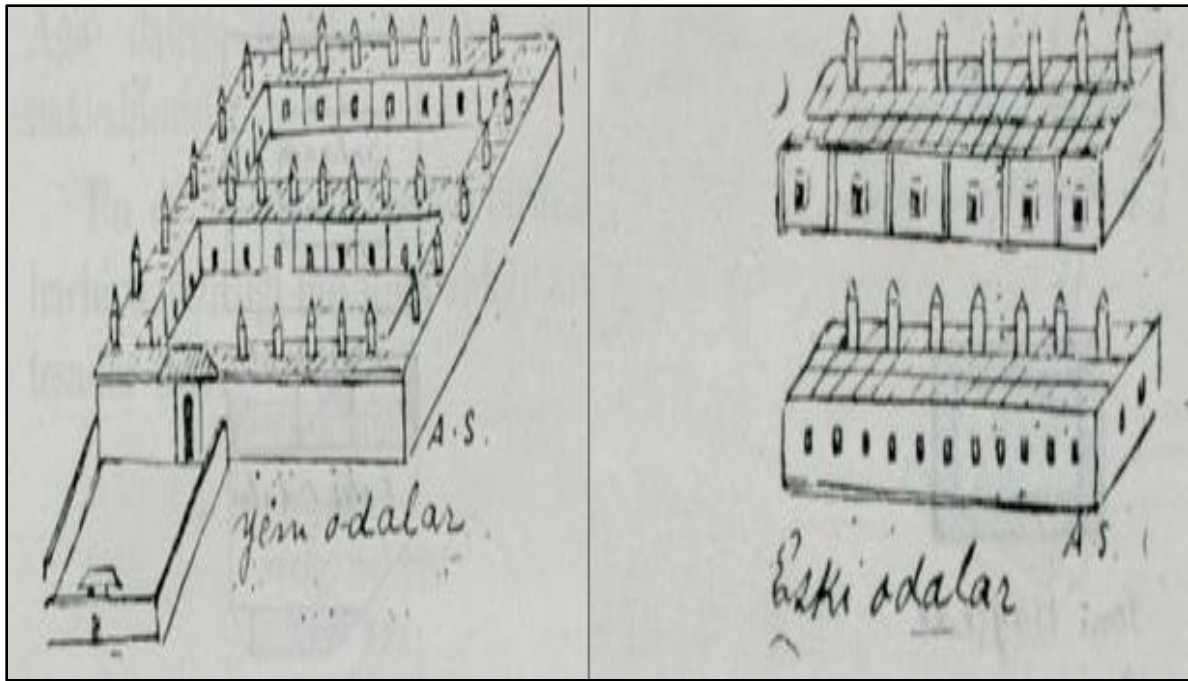 A.S.
yeni odalar
A.S.
Eski odalar